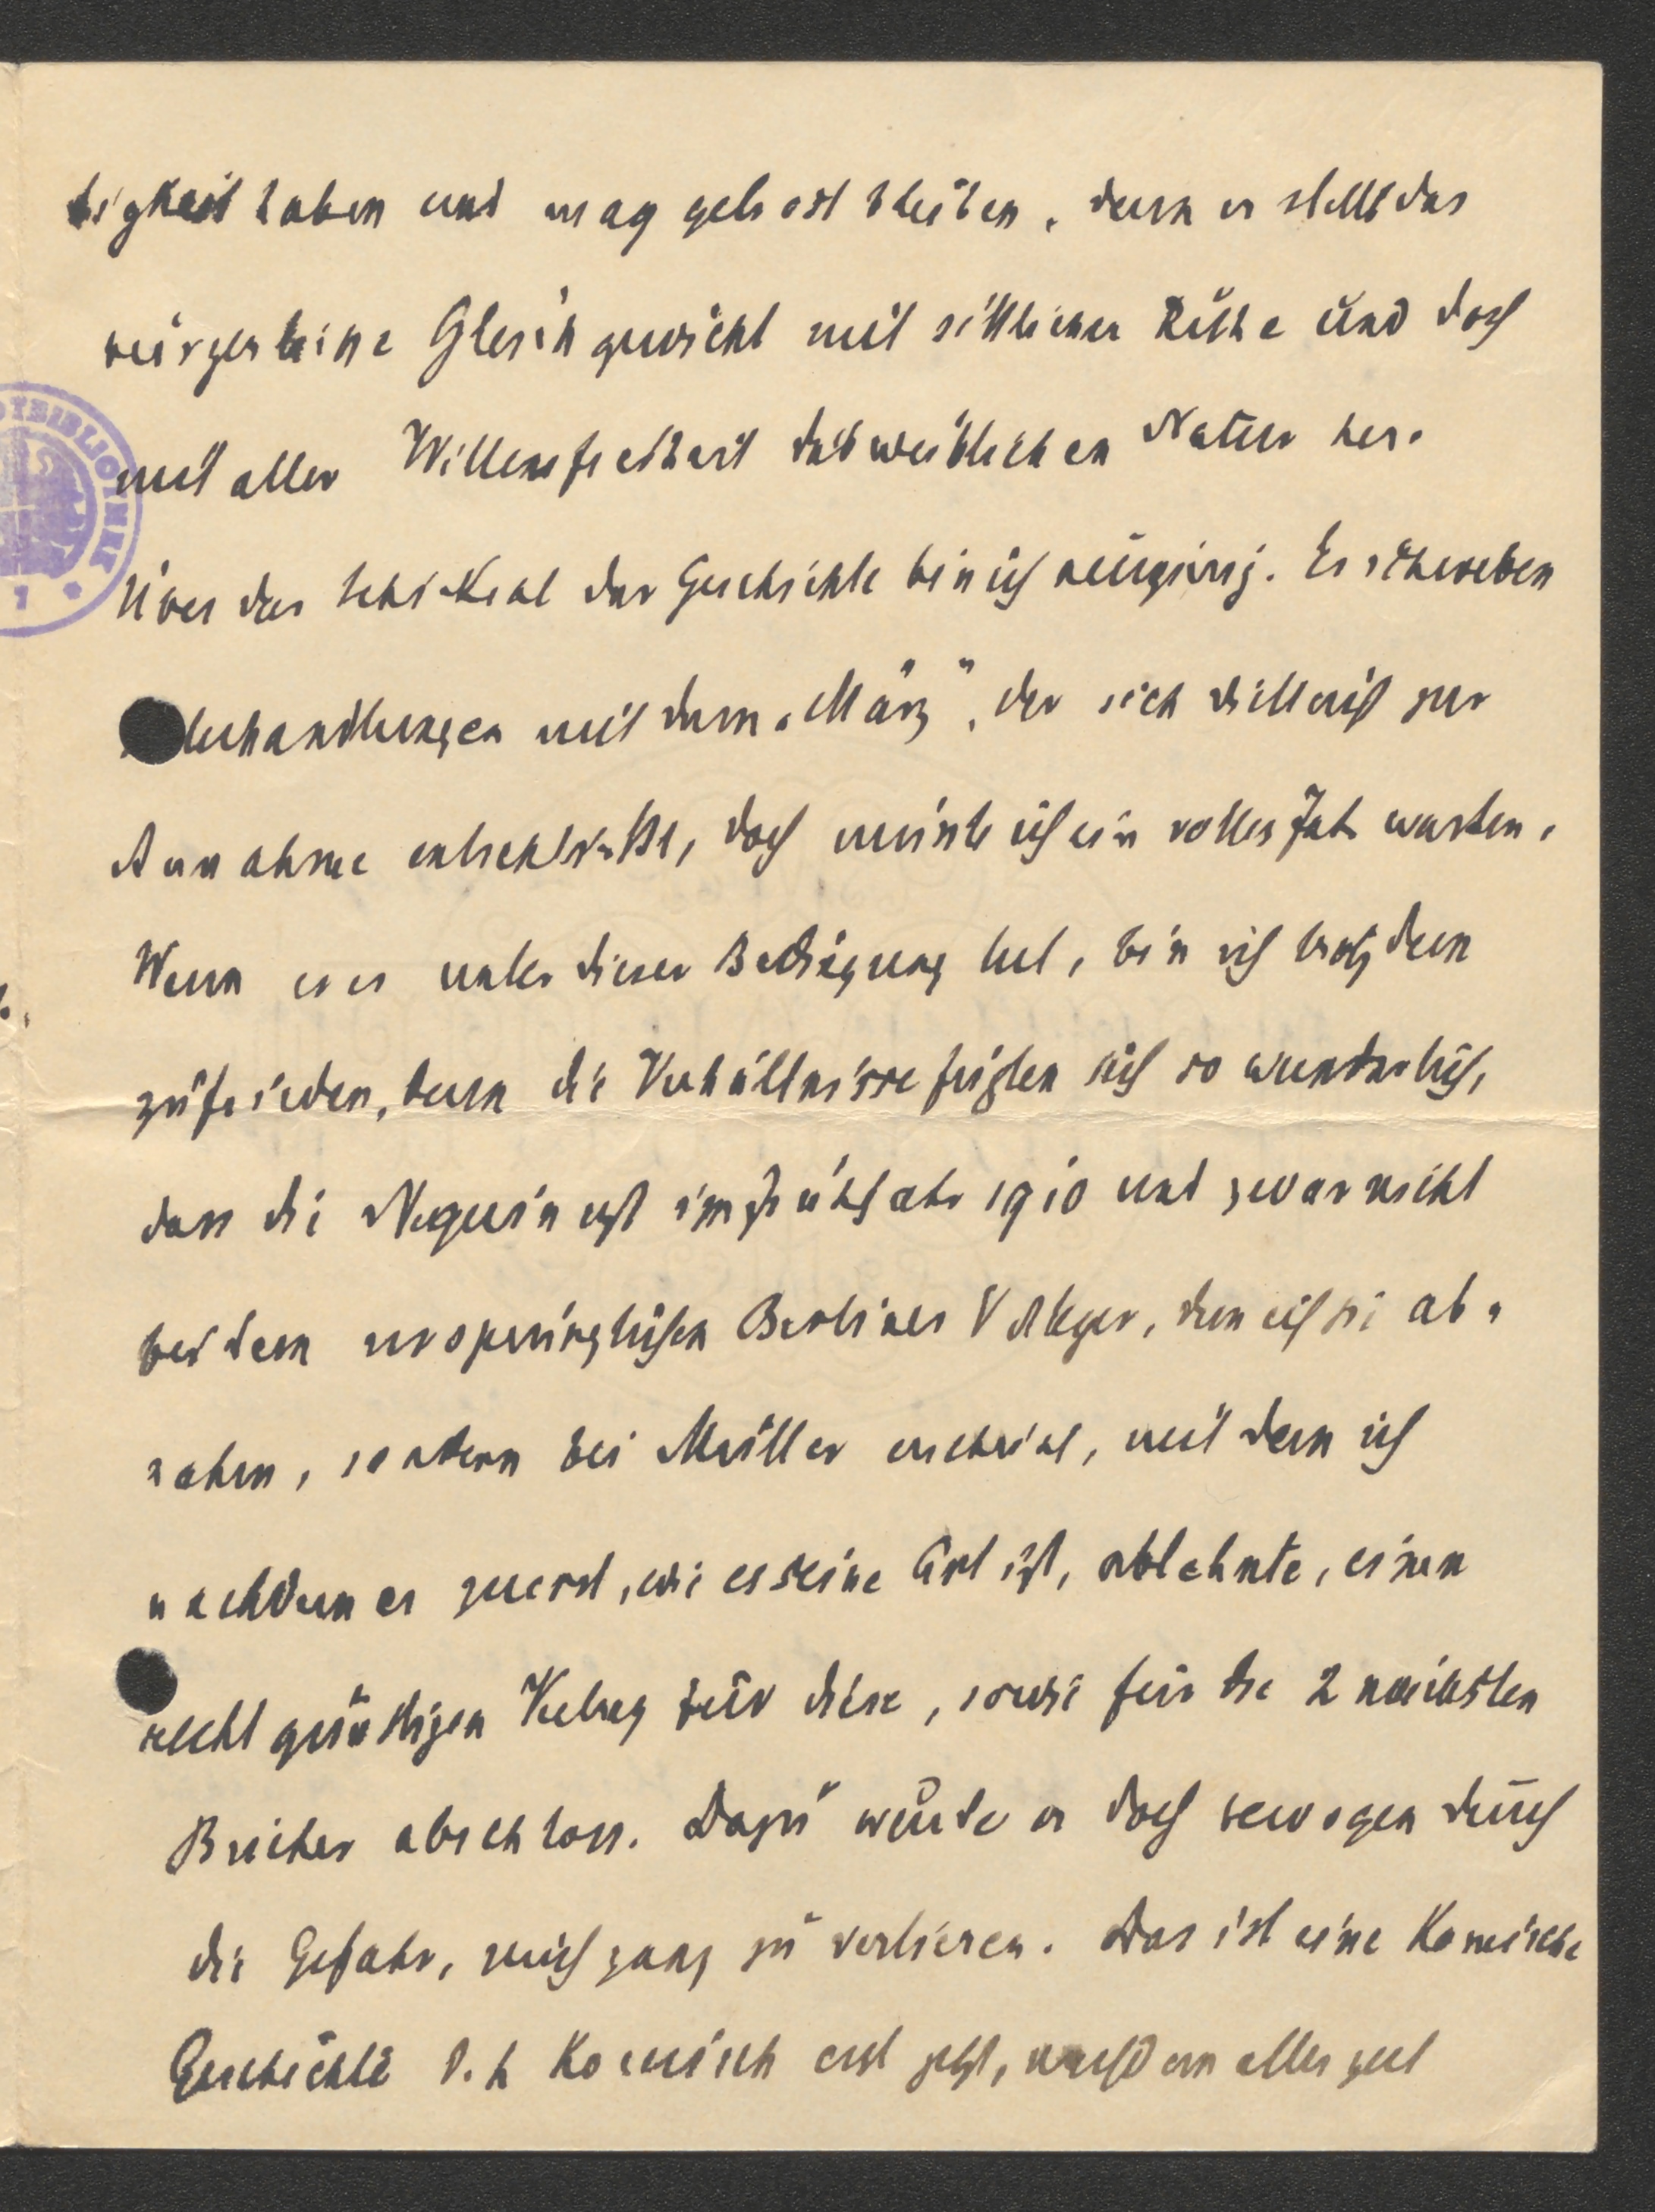 tigkeit haben und mag getrost bleiben, denn er stellt das
bürgerliche Gleichgewicht mit sittlicher Ruhe und doch
mit aller Willensfreiheit der weiblichen Natur her.
Über das Schicksal der Geschichte bin ich neugierig. Es schweben
Verhandlungen mit dem „März“, der sich vielleicht zur
Annahme entschließt, doch müsste ich ein volles Jahr warten.
Wenn er es unter dieser Bedingung tut, bin ich trotzdem
zufrieden, denn die Verhältnisse fügten sich so wunderlich,
dass die Negerin erst im Frühjahr 1910 und zwar nicht
bei dem ursprünglichen Berliner Verleger, dem ich sie ab-
nahm, sondern bei Müller erscheint, mit dem ich
nachdem er zuerst, wie es seine Art ist, ablehnte, einen
recht günstigen Vertrag für diese, sowie für die 2 nächsten
Bücher abschloss. Dazu wurde er doch bewogen durch
die Gefahr, mich ganz zu verlieren. Das ist eine komische
Geschichte d.h komisch erst jetzt, nachdem alles gut